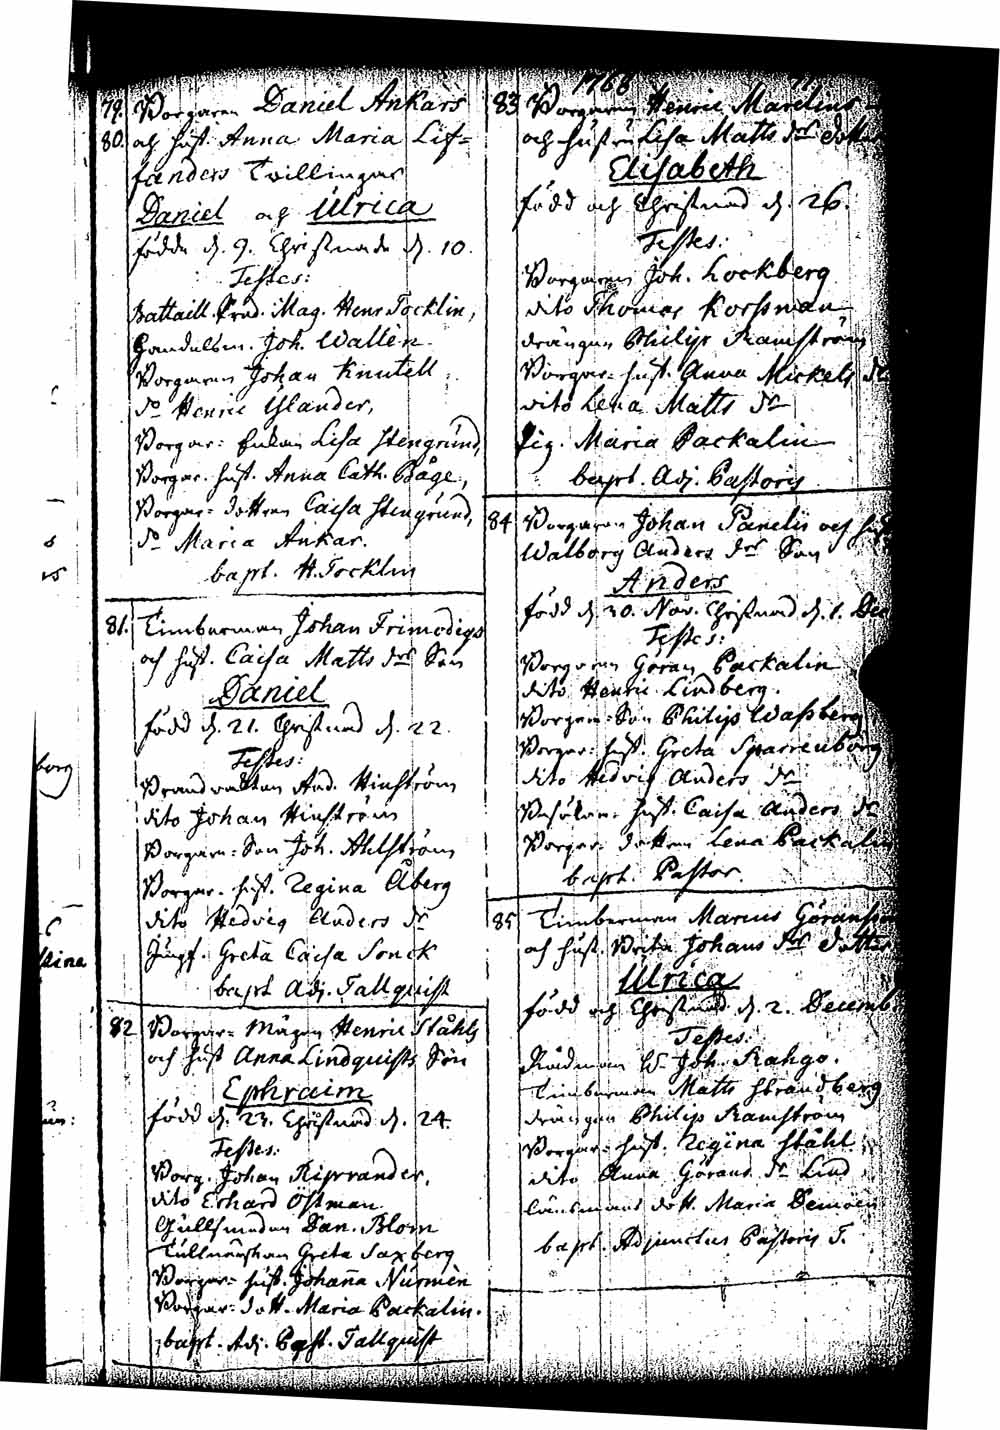 79. Borgaren Daniel Ankars
80. och hust. Anna Maria Lit=
fanders Tvillingar
Daniel och Ulrica
födde d. 9. Christnade d. 10.
Testes:
Battaill. Præd. Mag. Henr Tocklin,
Handelsm. Joh. Wallén
Borgaren Johan Knutell
do Henric Ylander,
Borgar: Enkan Lisa Stengrund,
Borgar. hust. Anna Cath. Båge,
Borgar= dottren Caisa Stengrund,
do Maria Ankar.
bapt. H. Tocklin
81. Timberman Johan Frimodigs
och hust. Caisa Matts drs Son
Daniel
född d. 21. Christnad d. 22.
Testes:
Brandvakten And. Hinström
dito Johan Hinström
Borgare= Son Joh. Ahlström
Borgar. hust. Regina Åberg
dito Hedvig Anders dr
Jungf. Greta Caisa Sonck
bapt Adj. Tallquist
82 Borgar= Mågen Henric Ståhls
och hust Anna Lindquists Son
Ephraim
född d. 23. Christnad d. 24.
Testes:
Borg. Johan
dito Erhard Östman
Gullsmeden Dan. Blom
Greta Saxberg
Borgar= hust. Johana Nurmén
Borgar= dott. Maria Packalin.
bapt. Adj. Past. Tallquist
1768
83 Borgaren Henric Marelius
och hustru Lisa Matts drs dotter
Elisabeth
född och Christnad d. 26.
Testes:
Borgaren Joh. Lockberg
dito Thomas Korssman
drängen Philip Ramström
Borgar= hust. Anna Mickels dr
dito Lena Matts dr
Pig. Maria Packalin
bapt. Adj. Pastoris
84 Borgaren Johan Panelii och hust
Walborg Anders drs Son
Anders
född d. 30. Nov. Christnad d. 1. Dec
Testes:
Borgaren Göran Packalin
dito Henric Lindberg.
Borgare= Son Philip Wasberg
Borgar= hust. Greta Sparrenborg
dito Hedvig Anders dr
hust. Caisa Anders dr
Borgar= dottren Lena Packalin
bapt. Pastor.
85 Timberman Marcus Göransson
och hust. Brita Johans drs dotter
Ulrica
född och Christnad d. 2. Decemb
Testes:
Rådman W. Joh. Rahgo.
Timberman Matts Strandberg
drängen Philip Ramström
Borgar= hust. Regina Ståhl
dito Anna Görans dr Lind
Länsmans dott. Maria Demoen
bapt. Adjunctus Pastoris T.
borg